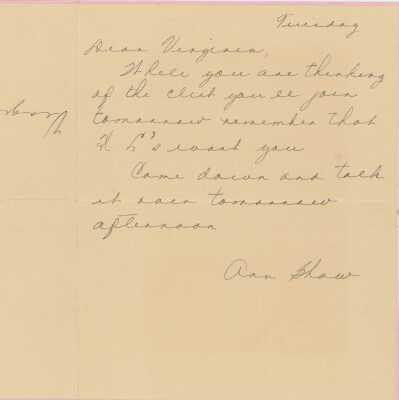 Tuesday
Dear Virginia,
While you are thinking
of the club you'll join
tomorrow remember that
K L's want you
Come down and talk
it over tomorrow
afternoon
Ann Shaw